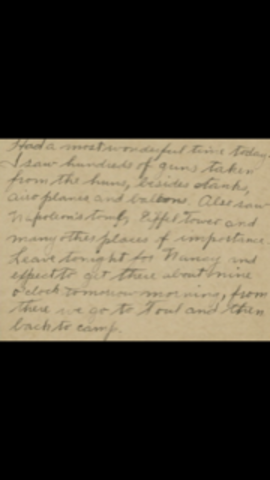 Had a most wonderful time today.
I saw hundreds of guns taken
from the huns, besides stanks,
aeroplanes and balloons. Also saw
Napoleon's tomb, Eiffel Tower and
many other places of importance.
Leave tonight for Nancy and
expect to get there about nine
o'clock tomorrow morning, from
there we go to Toul and then
back to camp.